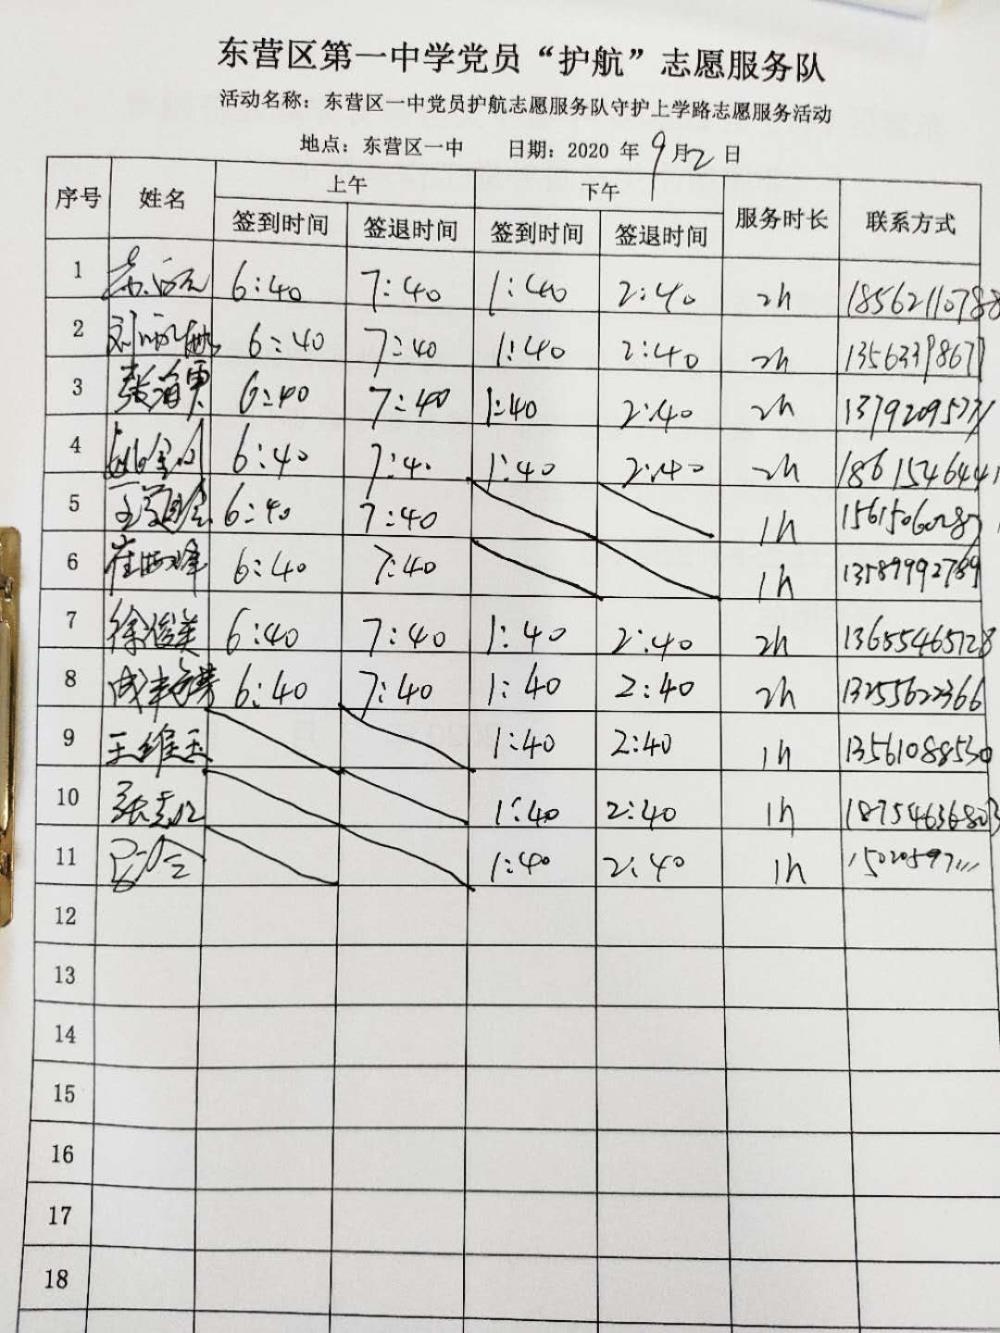 东营区第一中学党员“护航”志愿服务队
活动名称：东营区一中党员护航志愿服务队守护上学路志愿服务活动
地点：东营区一中 日期：2020 年 9 月 2 日
序号 姓名 上午 下午 服务时长 联系方式
签到时间 签退时间 签到时间 签退时间
1 6:40 7:40 1:40 2:40 2h 18562110788
2 6:40 7:40 1:40 2:40 2h
3 6:40 7:40 1:40 2:40 2h
4 6:40 7:4. 1:40 2:40 2h
5 6:40 7:40 1h
6 6:40 7:40 1h 13589992789
7 徐俊美 6:40 7:40 1:40 2:40 2h 13655465128
8 6:40 7:40 1:40 2:40 2h 13255622366
9 王维玉 1:40 2:40 1h 13561088530
10 1:40 2:40 1h 18754636803
11 1:40 2:40 1h
12
13
14
15
16
17
18